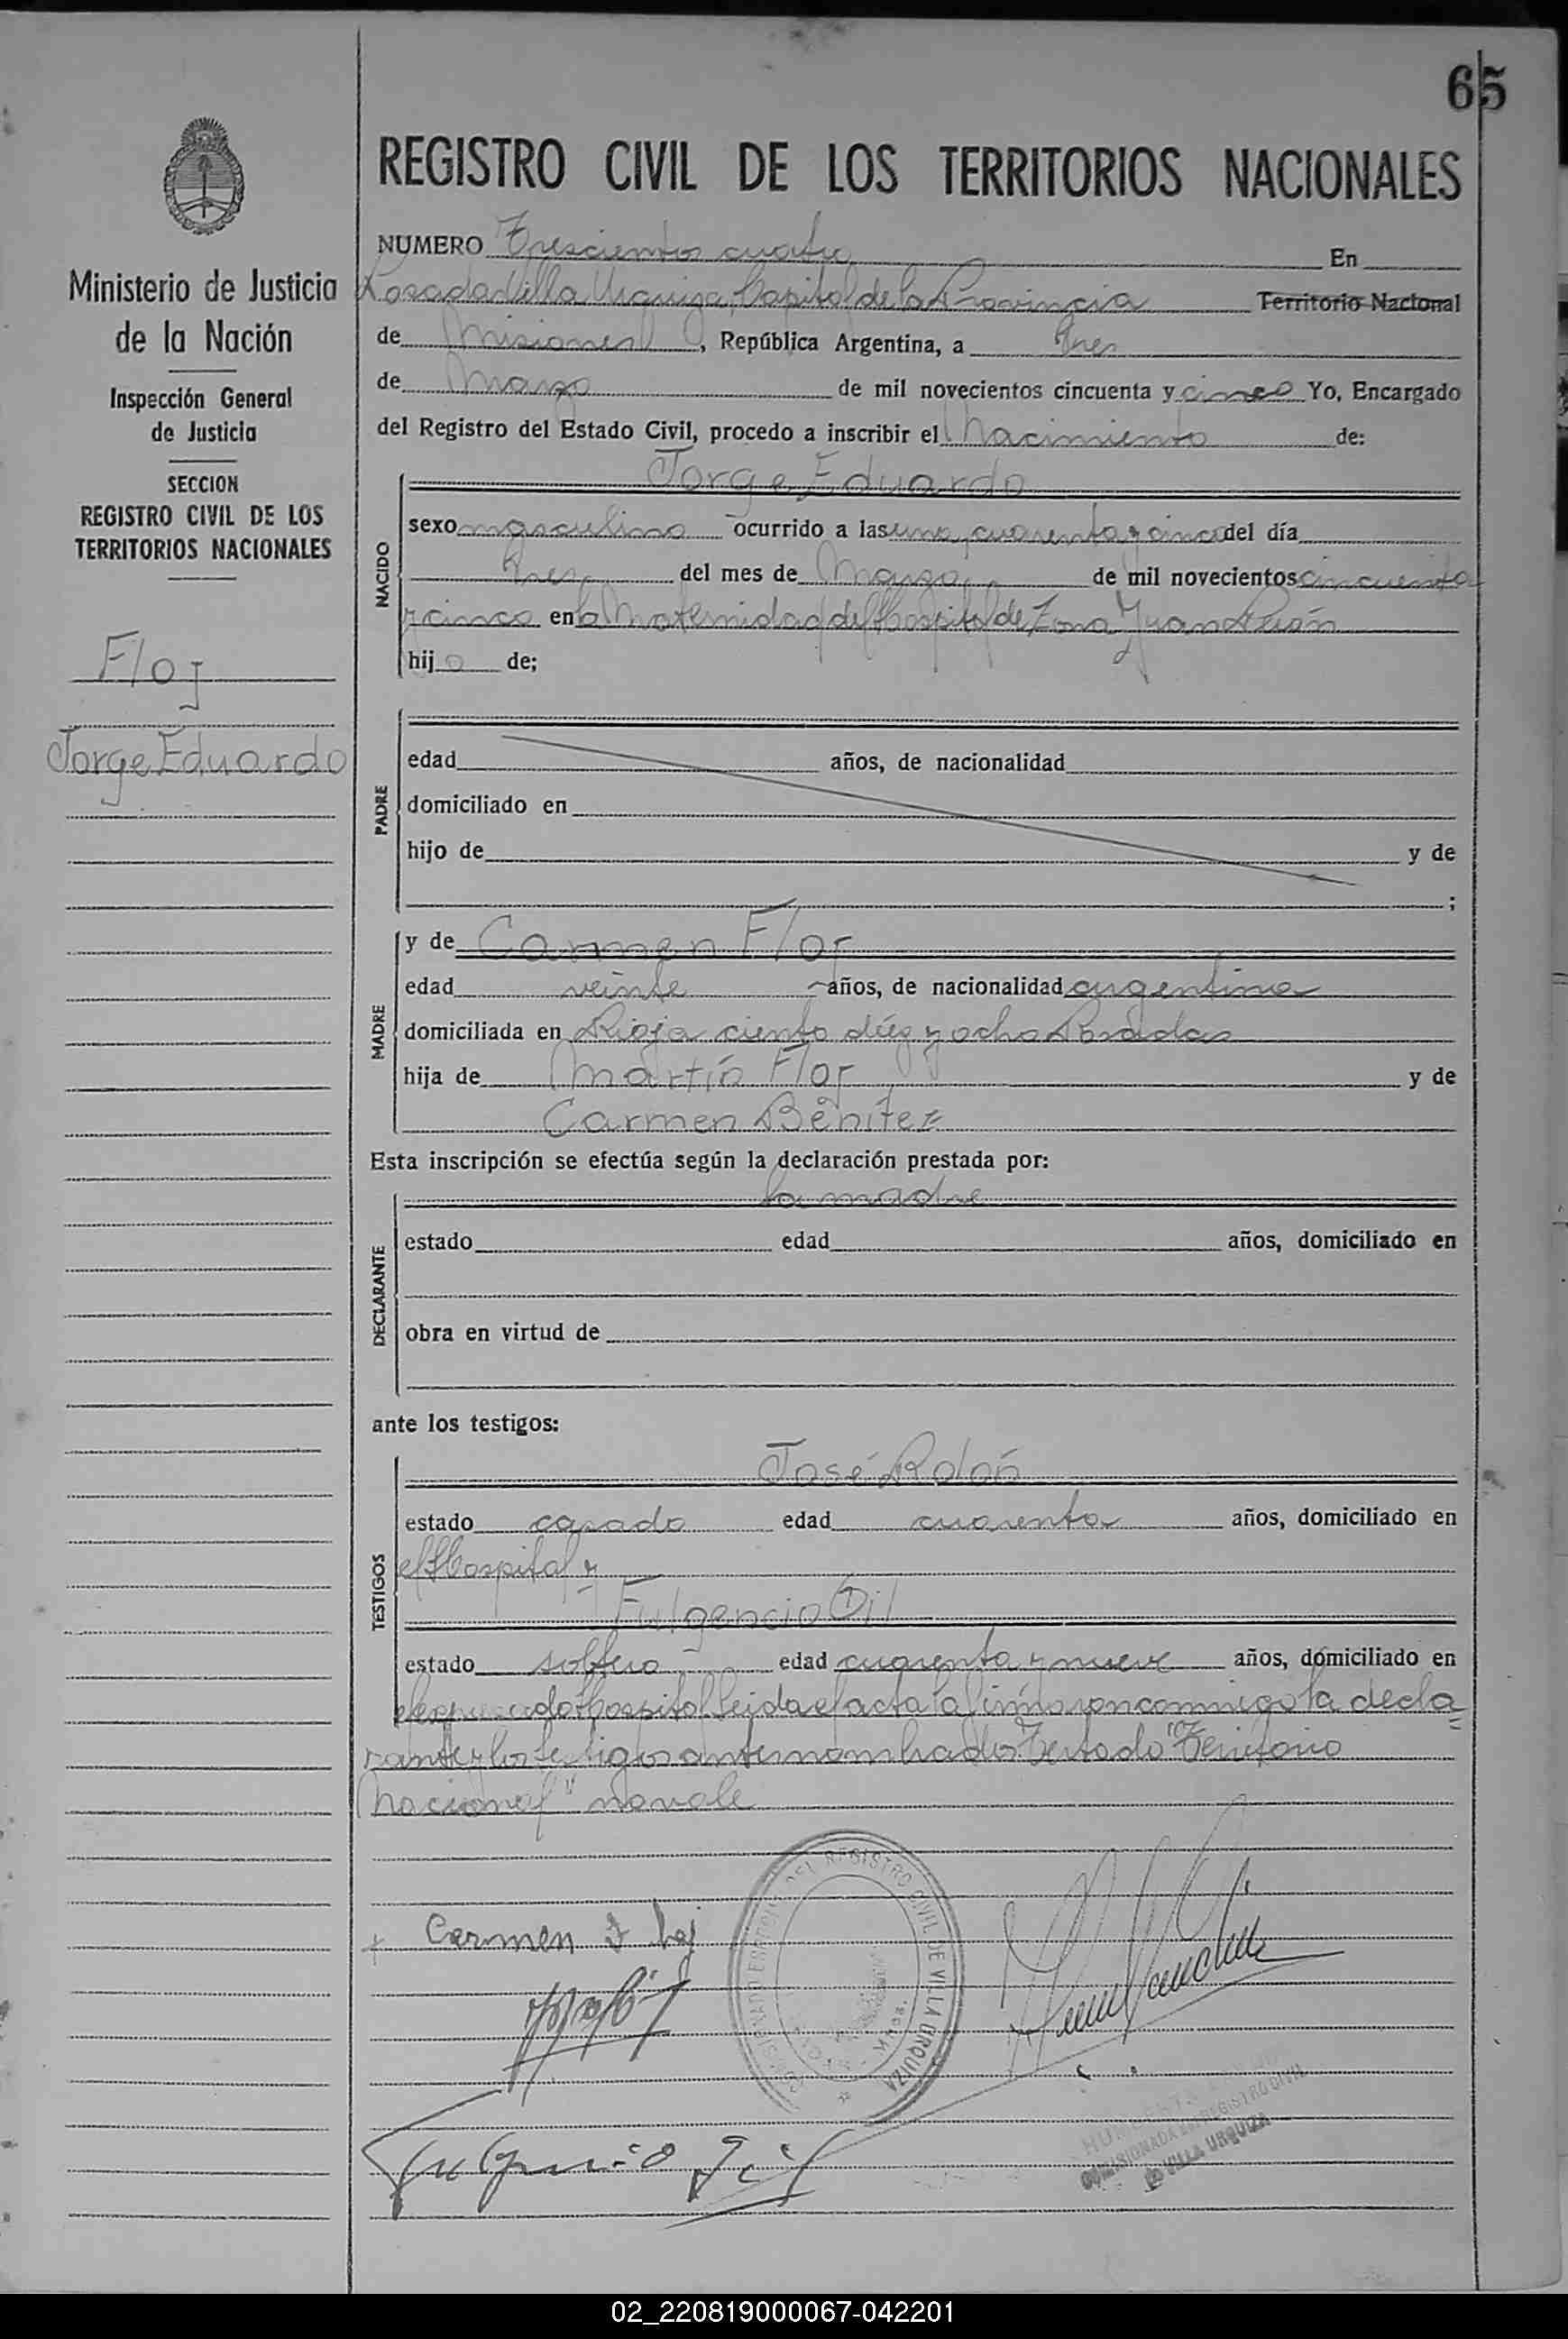 65
REGISTRO CIVIL DE LOS TERRITORIOS NACIONALES
Ministerio de Justicia
de la Nación
Inspección General
de Justicia
SECCION
REGISTRO CIVIL DE LOS
TERRITORIOS NACIONALES
Floj
Jorge Eduardo
NUMERO Trescientos cuatro En
Posadas Villa Urquiza, Capital de la Provincia Territorio Nacional
de Misiones, República Argentina, a tres
de Marzo de mil novecientos cincuenta y cinco Yo, Encargado
del Registro del Estado Civil, procedo a inscribir el Nacimiento de:
NACIDO
Jorge Eduardo
sexo masculino ocurrido a las una, cuarenta y cinco del día
tres del mes de Marzo de mil novecientos cincuenta
y cinco en la Maternidad del Hospital de Zona Juan Perón
hijo de;
PADRE
edad años, de nacionalidad
domiciliado en
hijo de y de
;
MADRE
y de Carmen Floj
edad veinte años, de nacionalidad argentina
domiciliada en Rioja ciento diez y ocho Posadas
hija de Martín Floj y de
Carmen Benítez
Esta inscripción se efectúa según la declaración prestada por:
DECLARANTE
la madre
estado edad años, domiciliado en
obra en virtud de
ante los testigos:
TESTIGOS
José Rolón
estado casado edad cuarenta años, domiciliado en
el Hospital y
Fulgencio Gil
estado soltero edad cuarenta y nueve años, domiciliado en
el expresado Hospital Leida el acta la firmaron conmigo la decla=
rante y los testigos antes nombrados. Testado "Territorio
Nacional" no vale
Carmen Floj
Fulgencio Gil
DEL REGISTRO CIVIL DE VILLA URQUIZA
COMISIONADA DEL REGISTRO CIVIL
DE VILLA URQUIZA
02_220819000067-042201